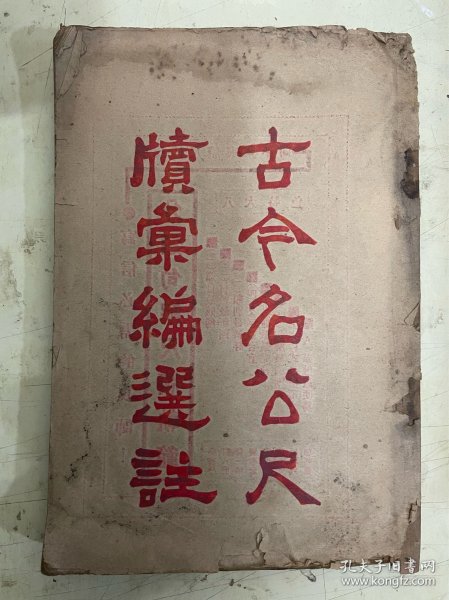 古今名公尺
牘彙編選註
孔夫子旧书网
www.kongfz.com